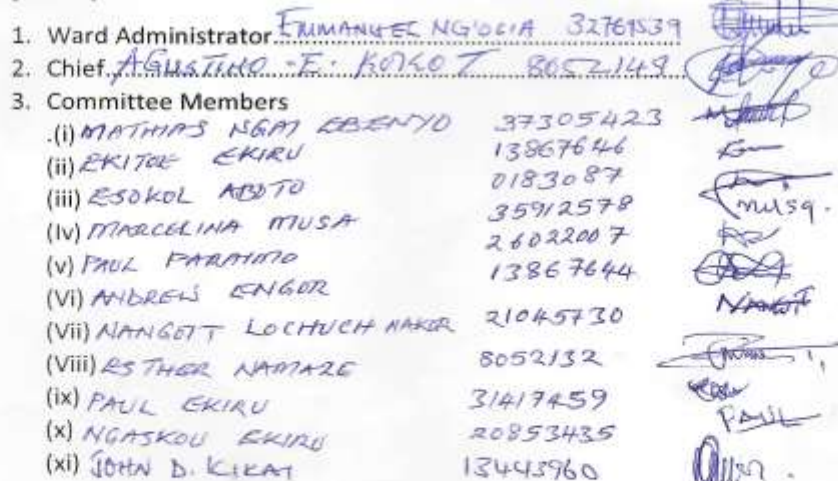 1. Ward Administrator EMMANUEL NG'OLIA 32769539
2. Chief AGUSTINO -E- KOKOT 8052149
3. Committee Members
.(i) MATHIAS NGAI EBENYO 37305423
(ii) EKITOE EKIRU 13867646
(iii) ESOKOL ABOTO 0183087
(Iv) MARCELINA MUSA 35912578 musa.
(v) PAUL 26022007
(Vi) ANDREW ENGOR 13867644
(Vii) LOCHUCH 21045730
(Viii) ESTHER 8052132
(ix) PAUL EKIRU 31417459
(x) EKIRU 20853435 PAUL
(xi) JOHN D. 13443960